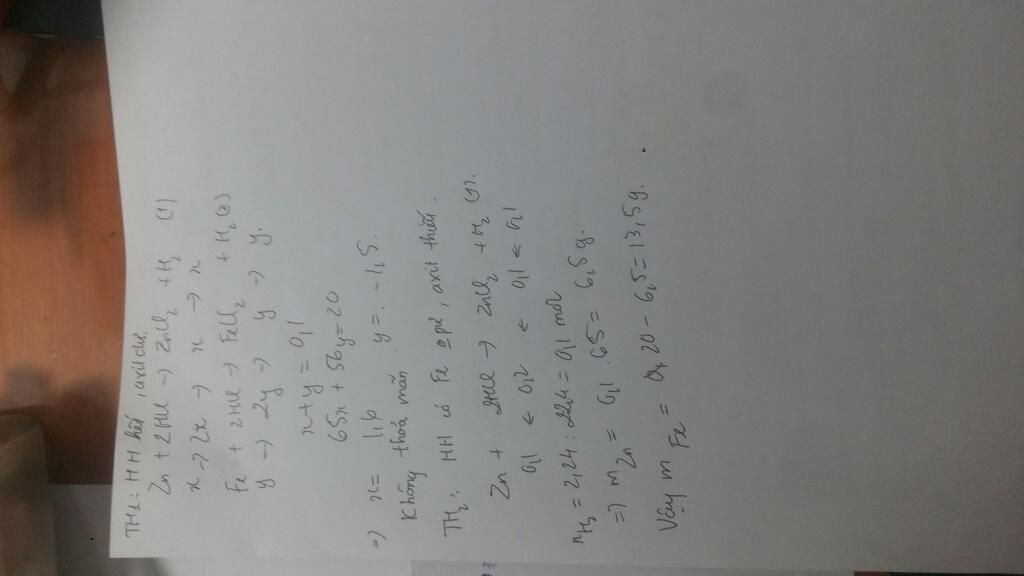 TH1: HH hết, axit dư.
Zn + 2HCl → ZnCl2 + H2 (1)
x → 2x → x → x
Fe + 2HCl → FeCl2 + H2 (2)
y → 2y → y → y.
x + y = 0,1
65x + 56y = 20
=> x = 1,6 y = -1,5.
Không thoả mãn
TH2: HH có Fe o pứ, axit thiếu.
Zn + 2HCl → ZnCl2 + H2 (1).
0,1 ← 0,2 ← 0,1 ← 0,1
nH2 = 2,24 : 22,4 = 0,1 mol
=> mZn = 0,1 . 65 = 6,5g.
Vậy m Fe = 20 - 6,5 = 13,5g.